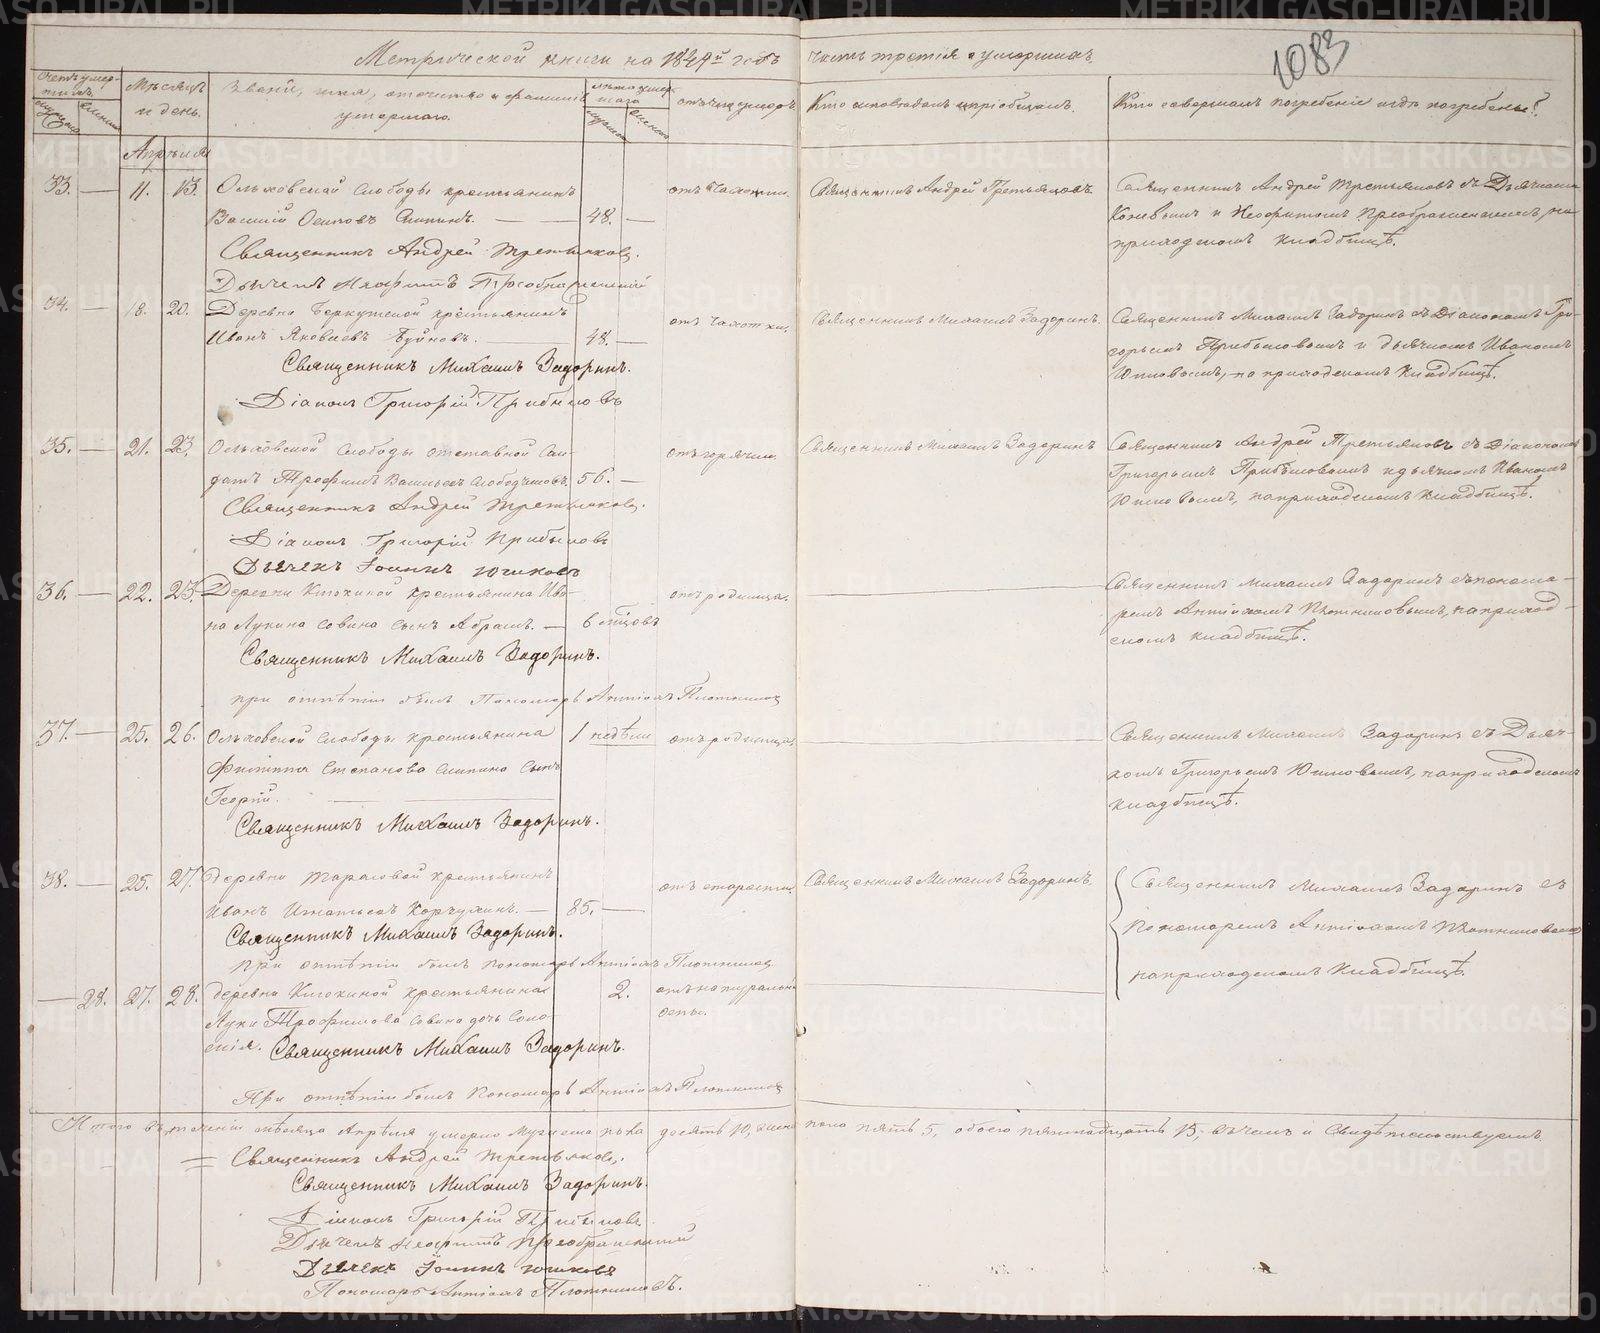 Метрической книги на 1849й годъ часть третія о умершихъ.
1083
Счетъ умершихъ.
Мѣсяцъ и день.
Званіе, имя, отчество и фамилія умершаго.
Лѣта умершаго
мужеска
женска
отъ чего умеръ
Кто исповѣдалъ и пріобщалъ.
Кто совершалъ погребеніе и гдѣ погребены?
Апрѣля
33. — 11. 13. Ольховской слободы крестьянинъ отъ чахотки. Священникъ Андрей Третьяковъ. Священникъ Андрей Третьяковъ съ Дьячками
Василій Осиповъ — 48. —
и Неофитомъ Преображенскимъ, на
Священникъ Андрей Третьяковъ.
приходскомъ кладбищѣ.
Дьячекъ Неофитъ Преображенскій
34. — 18. 20. Деревни крестьянинъ отъ чахотки. Священникъ Михаилъ Задоринъ. Священникъ Михаилъ Задоринъ съ Діакономъ Гри-
Иванъ Яковлевъ — 48. —
горьемъ Прибыловымъ и дьячкомъ Иваномъ
Священникъ Михаилъ Задоринъ.
Юшковымъ, на приходскомъ кладбищѣ.
Діаконъ Григорій Прибыловъ
35. — 21. 23. Ольховской слободы отставной сол- отъ горячки. Священникъ Михаилъ Задоринъ Священникъ Андрей Третьяковъ съ Діакономъ
датъ Трофимъ Васильевъ 56. —
Григорьемъ Прибыловымъ и дьячкомъ Иваномъ
Священникъ Андрей Третьяковъ.
Юшковымъ, на приходскомъ кладбищѣ.
Діаконъ Григорій Прибыловъ
Дьячекъ Іоаннъ Юшковъ
36. — 22. 23. Деревни Клюкиной крестьянина Ива- отъ родимца. — Священникъ Михаилъ Задоринъ съ понома-
на Лукина Совина сынъ Абрамъ. — 6 мѣсяцовъ
ремъ Антіохомъ Плотниковымъ, на приход-
Священникъ Михаилъ Задоринъ.
скомъ кладбищѣ.
при отпѣтіи былъ Пономарь Антіохъ Плотниковъ
37. — 25. 26. Ольховской слободы крестьянина 1 недѣли отъ родимца. — Священникъ Михаилъ Задоринъ съ Дьяч-
Филиппа Степанова сынъ
комъ Григорьемъ Юшковымъ, на приходскомъ
Георгій. —
кладбищѣ.
Священникъ Михаилъ Задоринъ.
38. — 25. 27. Деревни Тарасовой крестьянинъ отъ старости. Священникъ Михаилъ Задоринъ. Священникъ Михаилъ Задоринъ съ
Иванъ Игнатьевъ — 85. —
Пономаремъ Антіохомъ Плотниковымъ
Священникъ Михаилъ Задоринъ.
При отпѣтіи былъ Пономарь Антіохъ Плотниковъ
на приходскомъ кладбищѣ.
— 28. 27. 28. Деревни Клюкиной крестьянина 2. отъ натуральной
Луки Трофимова Совина дочь Соло- оспы.
Священникъ Михаилъ Задоринъ.
При отпѣтіи былъ Пономарь Антіохъ Плотниковъ
Итого въ теченіи мѣсяца Апрѣля умерло Мужеска пола десять 10, женска пола пять 5, обоего пятнадцать 15, въ чемъ и Свидѣтельствуемъ.
Священникъ Андрей Третьяковъ.
Священникъ Михаилъ Задоринъ.
Діаконъ Григорій Прибыловъ
Дьячекъ Неофитъ Преображенскій
Дьячекъ Іоаннъ Юшковъ
Пономарь Антіохъ Плотниковъ.
METRIKI.GASO-URAL.RU